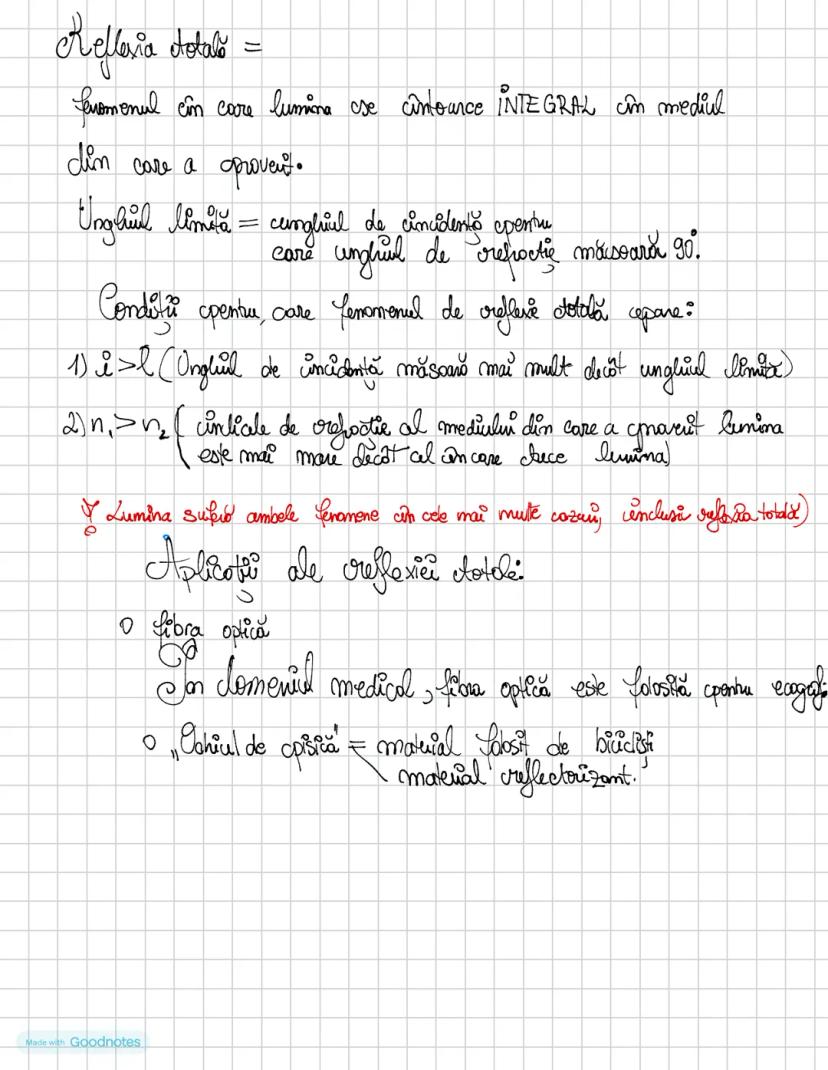 Reflexia totală =
fenomenul în care lumina se întoarce INTEGRAL în mediul
din care a provenit.
Unghiul limită = unghiul de incidență pentru
care unghiul de refracție măsoară 90°.
Condiții pentru care fenomenul de reflexie totală apare:
1) i > l (Unghiul de incidență măsoară mai mult decât unghiul limită)
2) n₁ > n₂ ( indicale de refracție al mediului din care a provenit lumina
este mai mare decât cel în care trece lumina)
! Lumina suferă ambele fenomene în cele mai multe cazuri, inclusiv reflexia totală)
Aplicații ale reflexiei totale:
o fibra optică
În domeniul medical, fibra optică este folosită pentru
o „Ochiul de pisică" = material folosit de bicicliști
material reflectorizant.
Made with Goodnotes